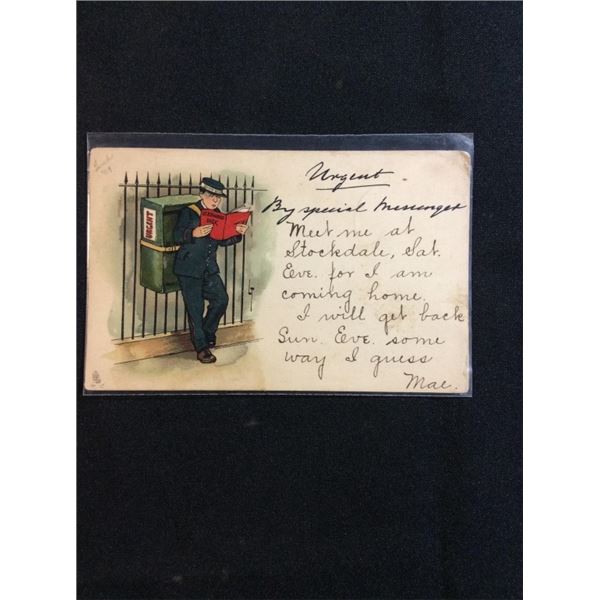 Urgent.
By special Messenger
Meet me at
Stockdale, Sat.
Eve. for I am
coming home.
I will get back
Sun. Eve. some
way I guess
Mae.
URGENT